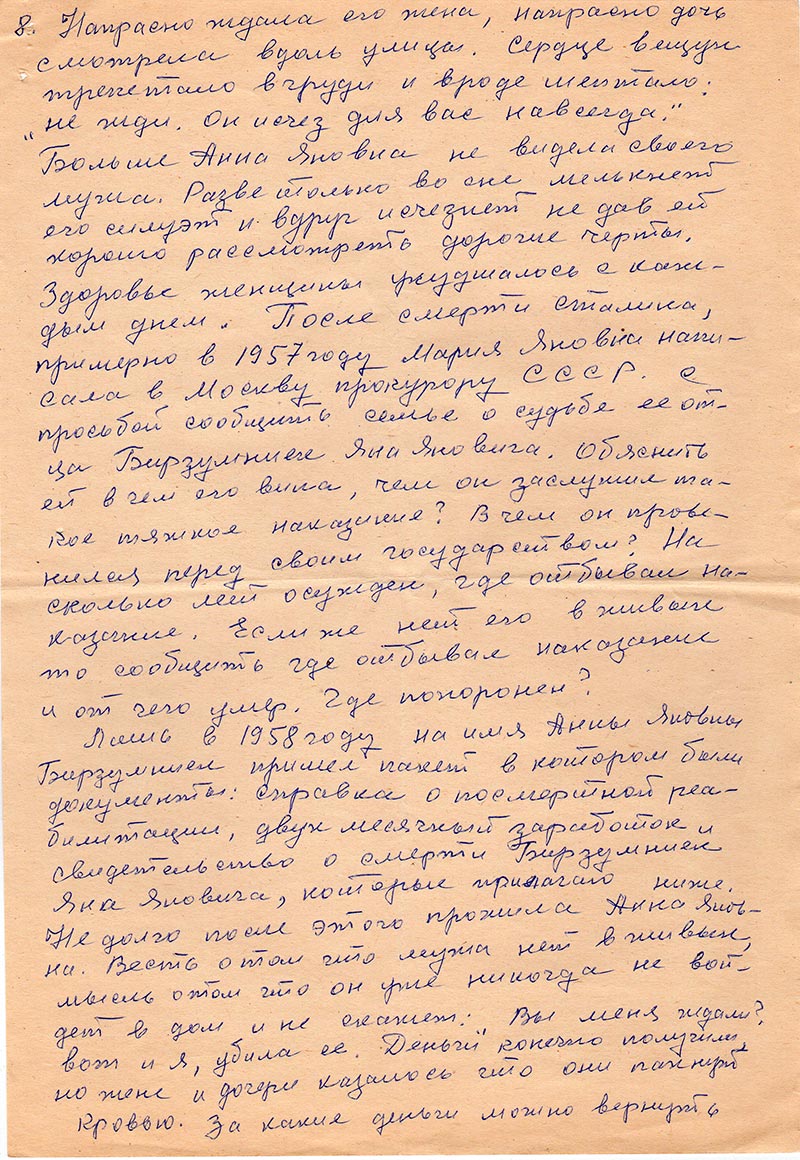 8. Напрасно ждала его жена, напрасно дочь
смотрела вдоль улицы. Сердце вещун
трепетало в груди и вроде шептало:
"не жди. Он исчез для вас навсегда."
Больше Анна Яновна не видела своего
мужа. Разве только во сне мелькнет
его силуэт и вдруг исчезнет не дав ей
хорошо рассмотреть дорогие черты.
Здоровье женщины ухудшалось с каж-
дым днем. После смерти Сталина,
примерно в 1957 году Мария Яновна напи-
сала в Москву прокурору СССР. с
просьбой сообщить семье о судьбе ее от-
ца Бирзумниек Яна Яновича. Объяснить
ей в чем его вина, чем он заслужил та-
кое тяжкое наказание? В чем он прови-
нился перед своим государством? На
сколько лет осужден, где отбывал на-
казание. Если же нет его в живых
то сообщить где отбывал наказание
и от чего умер. Где похоронен?
Лишь в 1958 году на имя Анны Яновны
Бирзумниек пришел пакет в котором были
документы: справка о посмертной реа-
билитации, двух месячный заработок и
свидетельство о смерти Бирзумниек
Яна Яновича, которые прилагаю ниже.
Не долго после этого прожила Анна Янов-
на. Весть о том что мужа нет в живых,
мысль о том что он уже никогда не вой-
дет в дом и не скажет: Вы меня ждали?
вот и я, убила ее. Деньги конечно получили,
но жене и дочери казалось что они пахнут
кровью. За какие деньги можно вернуть